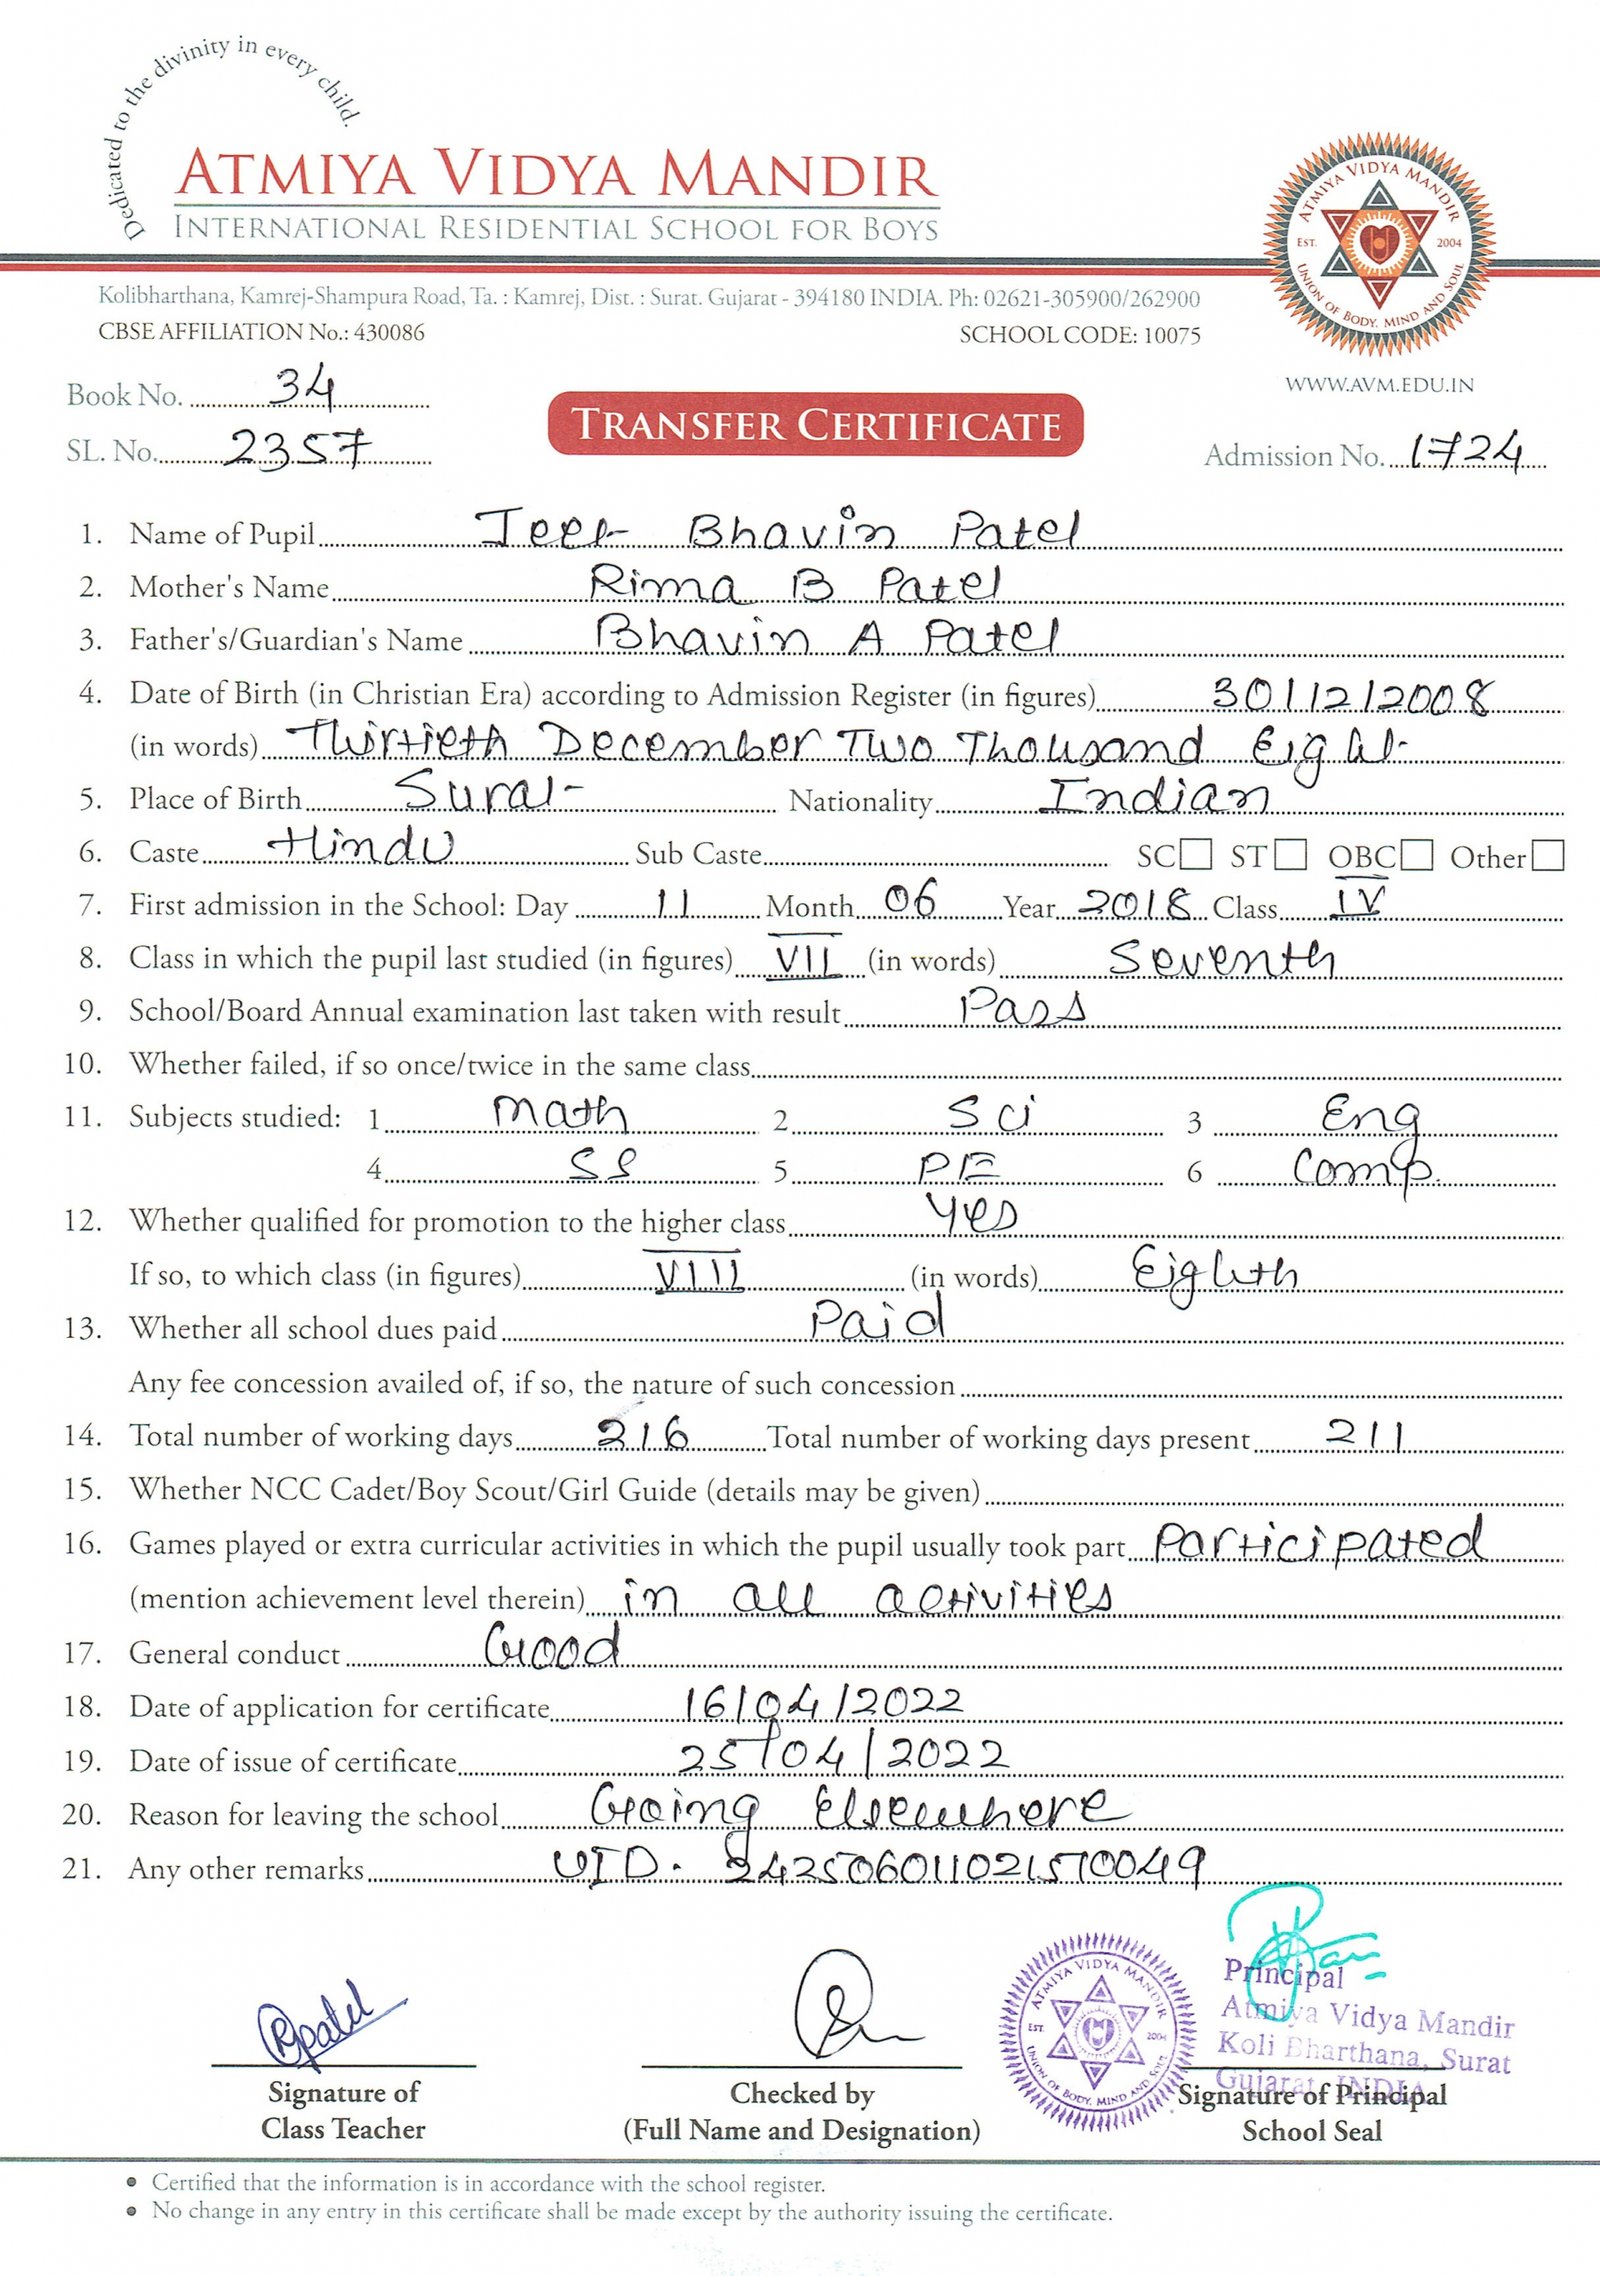 Dedicated to the divinity in every child.
ATMIYA VIDYA MANDIR
INTERNATIONAL RESIDENTIAL SCHOOL FOR BOYS
ATMIYA VIDYA MANDIR
EST. 2004
UNION OF BODY, MIND AND SOUL
Kolibharthana, Kamrej-Shampura Road, Ta. : Kamrej, Dist. : Surat. Gujarat - 394180 INDIA. Ph: 02621-305900/262900
CBSE AFFILIATION No.: 430086 SCHOOL CODE: 10075
WWW.AVM.EDU.IN
Book No. 34
TRANSFER CERTIFICATE
SL. No. 2357 Admission No. 1724
1. Name of Pupil Jeet Bhavin Patel
2. Mother's Name Rima B Patel
3. Father's/Guardian's Name Bhavin A Patel
4. Date of Birth (in Christian Era) according to Admission Register (in figures) 30/12/2008
(in words) Thirtieth December Two Thousand Eight
5. Place of Birth Surat Nationality Indian
6. Caste Hindu Sub Caste SC ST OBC Other
7. First admission in the School: Day 11 Month 06 Year 2018 Class IV
8. Class in which the pupil last studied (in figures) VII (in words) Seventh
9. School/Board Annual examination last taken with result Pass
10. Whether failed, if so once/twice in the same class
11. Subjects studied: 1 Math 2 Sci 3 Eng
4 SS 5 PE 6 Comp.
12. Whether qualified for promotion to the higher class Yes
If so, to which class (in figures) VIII (in words) Eighth
13. Whether all school dues paid Paid
Any fee concession availed of, if so, the nature of such concession
14. Total number of working days 216 Total number of working days present 211
15. Whether NCC Cadet/Boy Scout/Girl Guide (details may be given)
16. Games played or extra curricular activities in which the pupil usually took part Participated
(mention achievement level therein) in all activities
17. General conduct Good
18. Date of application for certificate 16/04/2022
19. Date of issue of certificate 25/04/2022
20. Reason for leaving the school Going Elsewhere
21. Any other remarks UID. 242506011021570049
Principal
Atmiya Vidya Mandir
Koli Bharthana, Surat
Gujarat, INDIA
ATMIYA VIDYA MANDIR
EST. 2004
UNION OF BODY, MIND AND SOUL
Signature of Checked by Signature of Principal
Class Teacher (Full Name and Designation) School Seal
• Certified that the information is in accordance with the school register.
• No change in any entry in this certificate shall be made except by the authority issuing the certificate.